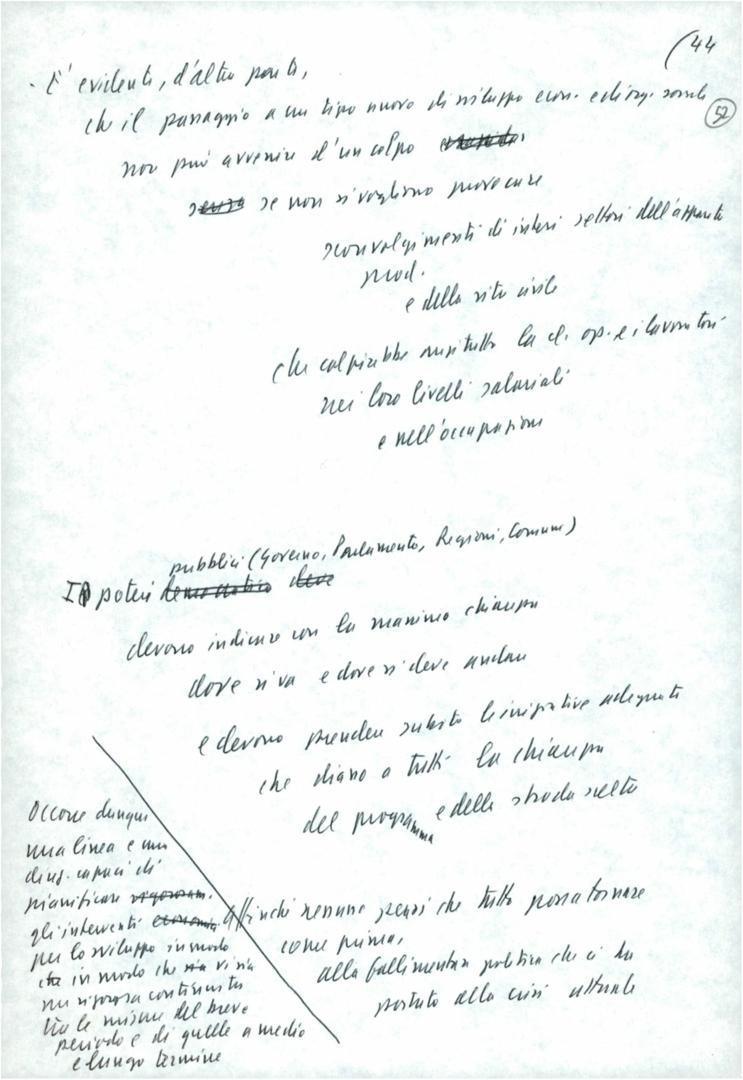 (44
52
- E' evidente, d'altra parte,
che il passaggio a un tipo nuovo di sviluppo econ. e di org. sociale
non può avvenire d'un colpo
senza se non si vogliono provocare
sconvolgimenti di interi settori dell'apparato
prod.
e della vita civile
che colpirebbe anzitutto la cl. op. e i lavoratori
nei loro livelli salariali
e nell'occupazione
pubblici (Governo, Parlamento, Regioni, Comuni)
I poteri democratici deve
devono indicare con la massima chiarezza
dove si va e dove si deve andare
e devono prendere subito le iniziative adeguate
che diano a tutti la chiarezza
del programma e della strada scelta
Occorre dunque
una linea e una
direz. capaci di
pianificare rigorosam.
gli interventi economici
per lo sviluppo in modo
che in modo che sia vi sia
una rigorosa continuità
tra le misure del breve
periodo e di quelle a medio
e lungo termine
Affinché nessuno pensi che tutto possa tornare
come prima,
alla fallimentare politica che ci ha
portato alla crisi attuale